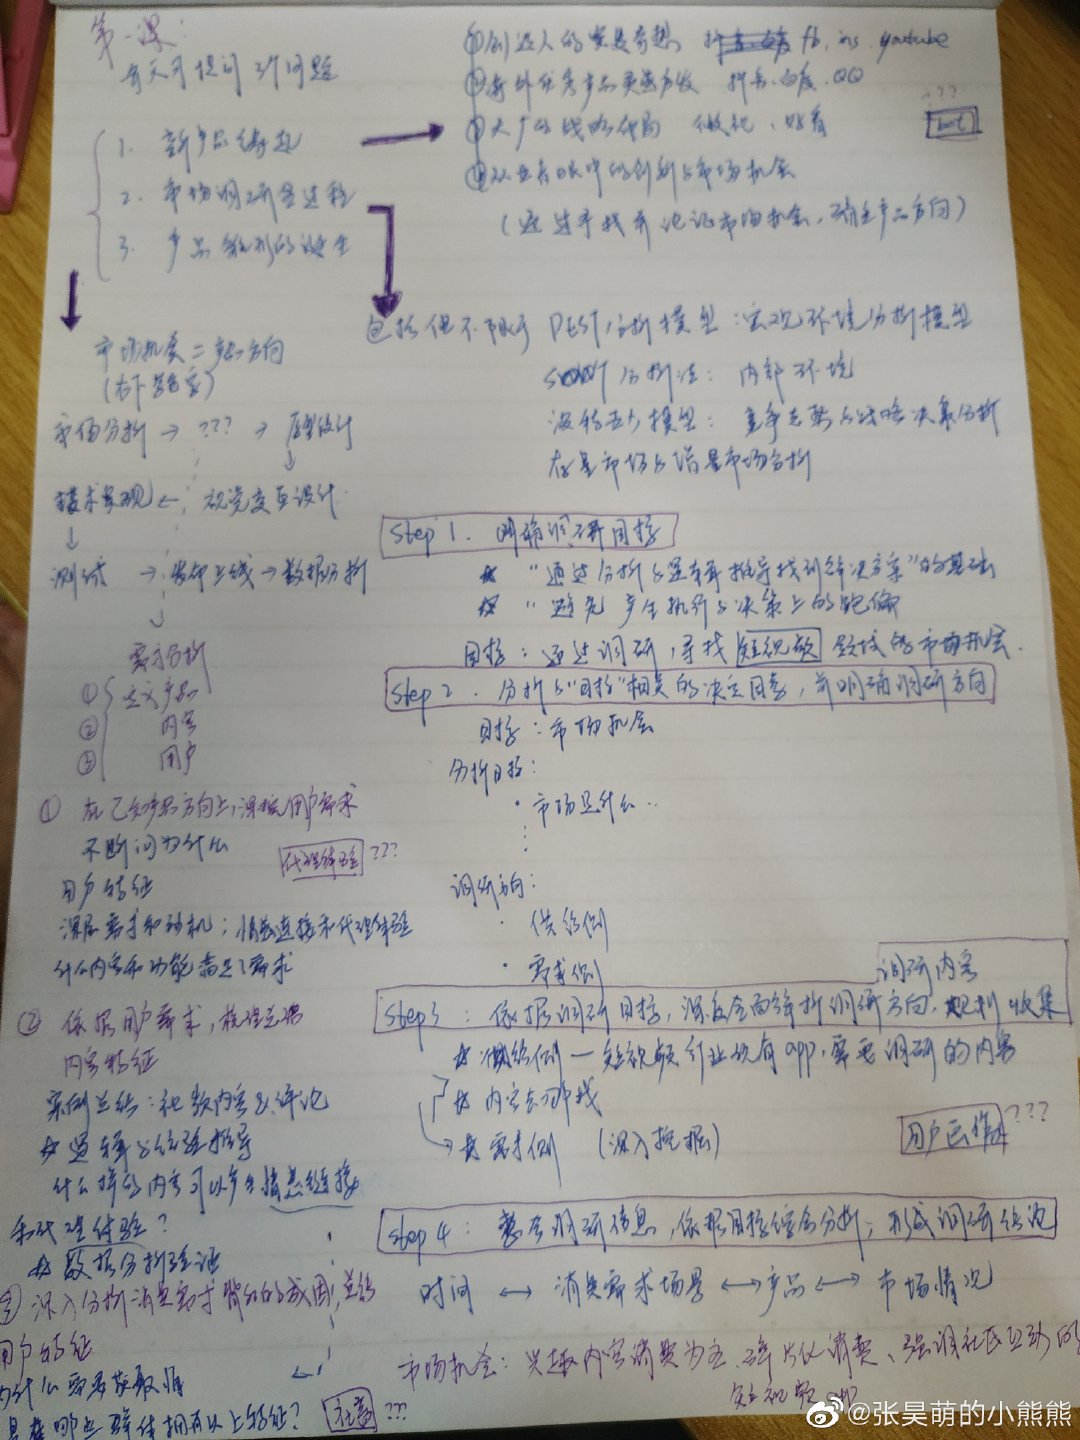 第一课：
每天可提问3个问题
1. 新产品缘起
2. 市场调研全过程
3. 产品雏形的诞生
①创始人的突发奇想 fb, ins, youtube
②海外优秀产品灵感 百度 QQ
③大厂的战略布局
④从业者眼中的创新与市场机会
（通过寻找并论证市场机会，确定产品方向）
包括但不限于 PEST分析模型：宏观环境分析模型
SWOT分析法：内部环境
波特五力模型：竞争态势与战略决策分析
存量市场与增量市场分析
市场机会 = 产品方向
市场分析 → ??? → 原型设计
技术实现 ← 视觉交互设计
测试 → 发布上线 → 数据分析
需求分析
① 定义产品
② 内容
③ 用户
① 在已知产品方向上，深挖用户需求
不断问为什么
代理体验 ???
用户特征
深层需求和动机：情感连接和代理体验
什么内容和功能满足了需求
② 依据用户需求，梳理总结
内容特征
案例总结：视频内容及评论
☆ 逻辑与经验推导
什么样的内容可以产生情感链接
和代理体验？
☆ 数据分析验证
③ 深入分析消费需求背后的成因，总结
用户特征
为什么需要获取
具在哪些群体拥有以上特征？ ???
Step 1. 明确调研目标
☆ "通过分析与逻辑推导找到解决方案"的基础
☆ 避免产生执行与决策上的跑偏
目标：通过调研，寻找 短视频 领域的市场机会.
Step 2. 分析与"目标"相关的决定因素，并明确调研方向
目标：市场机会
分析目标：
· 市场是什么..
调研方向：
· 供给侧
· 需求侧
调研内容
Step 3：依据调研目标，深度全面解析调研方向，规划收集
☆ 供给侧 — 短视频行业现有app，需要调研的内容
☆ 内容
☆ 需求侧 （深入挖掘）
用户画像 ???
Step 4：整合调研信息，依据目标综合分析，形成调研结论
时间 ↔ 消费需求场景 ↔ 产品 ↔ 市场情况
市场机会：兴趣内容消费为主、碎片化消费、强调社区互动的
短视频
@张昊萌的小熊熊